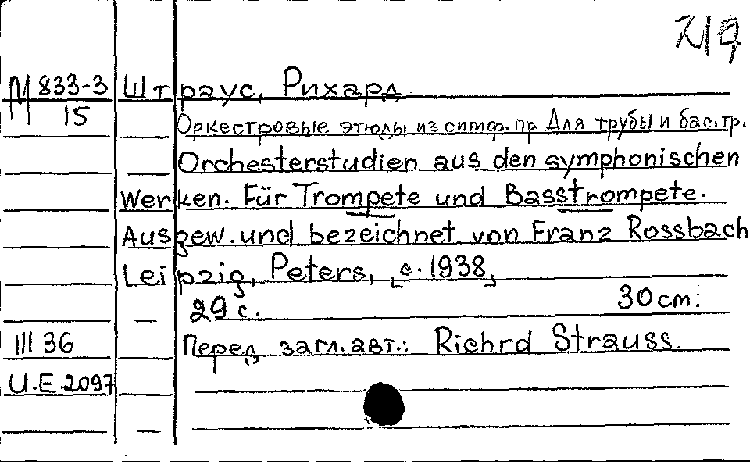 М 833-3 Штраус, Рихард
15
Оркестровые этюды из симф. пр. Для трубы и бас. тр.
Orchesterstudien aus den symphonischen
Werken. Für Trompete und Basstrompete.
Ausgew. und bezeichnet von Franz Rossbach
Leipzig, Peters, [c. 1938]
29 с. 30 cm.
III 36 Перед загл. авт.: Richrd Strauss.
U.E 2097